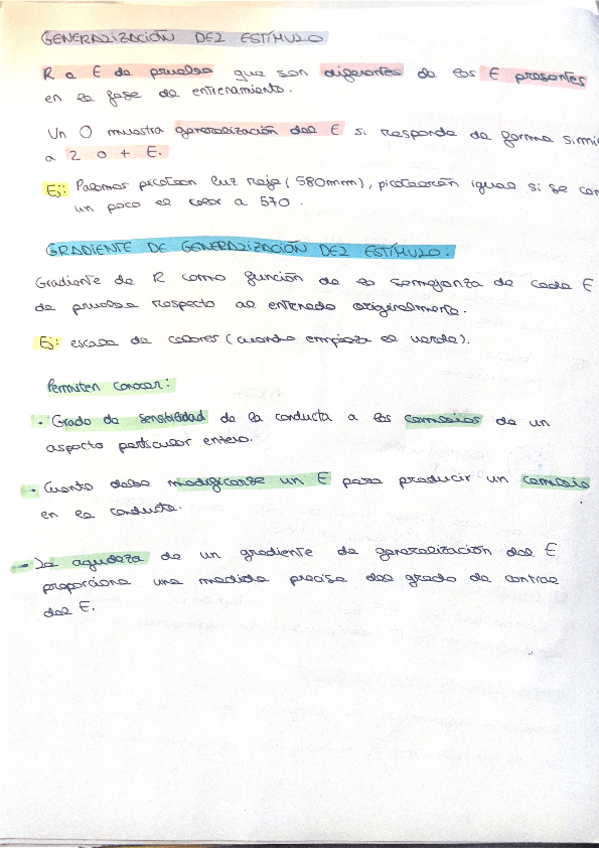 GENERALIZACIÓN DEL ESTÍMULO
R a E de prueba que son diferentes de los E presentes
en la fase de entrenamiento.
Un O muestra generalización del E si responde de forma simi
a 2 o + E.
Ej: Palomas picotean luz roja (580mm), picotearán igual si se
un poco el color a 570.
GRADIENTE DE GENERALIZACIÓN DEL ESTÍMULO.
Gradiente de R como función de la semejanza de cada E
de prueba respecto al entrenado originalmente.
Ej: escala de colores (cuando empieza el verde).
Permiten conocer:
· Grado de sensibilidad de la conducta a los cambios de un
aspecto particular entero.
- Cuanto debe modificarse un E para producir un cambio
en la conducta.
- La agudeza de un gradiente de generalización del E
proporciona una medida precisa del grado de control
del E.